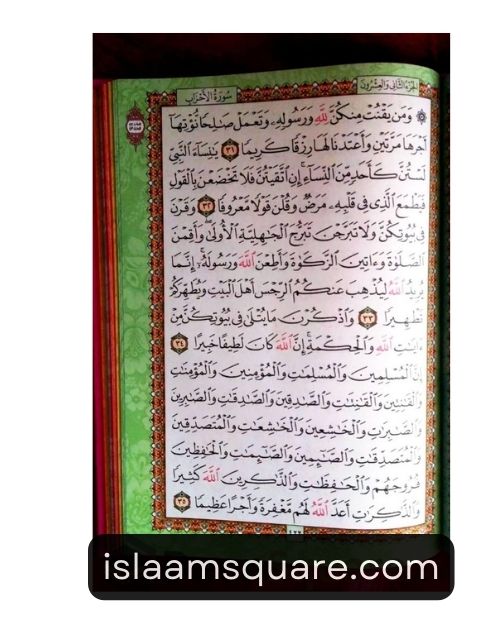 الجُزءُ الثَّانِي وَالعِشْرُونَ
سُورَةُ الأَحْزَابِ
۞ وَمَن يَقْنُتْ مِنكُنَّ لِلَّهِ وَرَسُولِهِۦ وَتَعْمَلْ صَٰلِحًا نُّؤْتِهَآ
أَجْرَهَا مَرَّتَيْنِ وَأَعْتَدْنَا لَهَا رِزْقًا كَرِيمًا ٣١ يَٰنِسَآءَ ٱلنَّبِىِّ
لَسْتُنَّ كَأَحَدٍ مِّنَ ٱلنِّسَآءِ إِنِ ٱتَّقَيْتُنَّ فَلَا تَخْضَعْنَ بِٱلْقَوْلِ
فَيَطْمَعَ ٱلَّذِى فِى قَلْبِهِۦ مَرَضٌ وَقُلْنَ قَوْلًا مَّعْرُوفًا ٣٢ وَقَرْنَ
فِى بُيُوتِكُنَّ وَلَا تَبَرَّجْنَ تَبَرُّجَ ٱلْجَٰهِلِيَّةِ ٱلْأُولَىٰ وَأَقِمْنَ
ٱلصَّلَوٰةَ وَءَاتِينَ ٱلزَّكَوٰةَ وَأَطِعْنَ ٱللَّهَ وَرَسُولَهُۥٓ إِنَّمَا
يُرِيدُ ٱللَّهُ لِيُذْهِبَ عَنكُمُ ٱلرِّجْسَ أَهْلَ ٱلْبَيْتِ وَيُطَهِّرَكُمْ
تَطْهِيرًا ٣٣ وَٱذْكُرْنَ مَا يُتْلَىٰ فِى بُيُوتِكُنَّ مِنْ
ءَايَٰتِ ٱللَّهِ وَٱلْحِكْمَةِ إِنَّ ٱللَّهَ كَانَ لَطِيفًا خَبِيرًا ٣٤
إِنَّ ٱلْمُسْلِمِينَ وَٱلْمُسْلِمَٰتِ وَٱلْمُؤْمِنِينَ وَٱلْمُؤْمِنَٰتِ
وَٱلْقَٰنِتِينَ وَٱلْقَٰنِتَٰتِ وَٱلصَّٰدِقِينَ وَٱلصَّٰدِقَٰتِ وَٱلصَّٰبِرِينَ
وَٱلصَّٰبِرَٰتِ وَٱلْخَٰشِعِينَ وَٱلْخَٰشِعَٰتِ وَٱلْمُتَصَدِّقِينَ
وَٱلْمُتَصَدِّقَٰتِ وَٱلصَّٰٓئِمِينَ وَٱلصَّٰٓئِمَٰتِ وَٱلْحَٰفِظِينَ
فُرُوجَهُمْ وَٱلْحَٰفِظَٰتِ وَٱلذَّٰكِرِينَ ٱللَّهَ كَثِيرًا
وَٱلذَّٰكِرَٰتِ أَعَدَّ ٱللَّهُ لَهُم مَّغْفِرَةً وَأَجْرًا عَظِيمًا ٣٥
islaamsquare.com